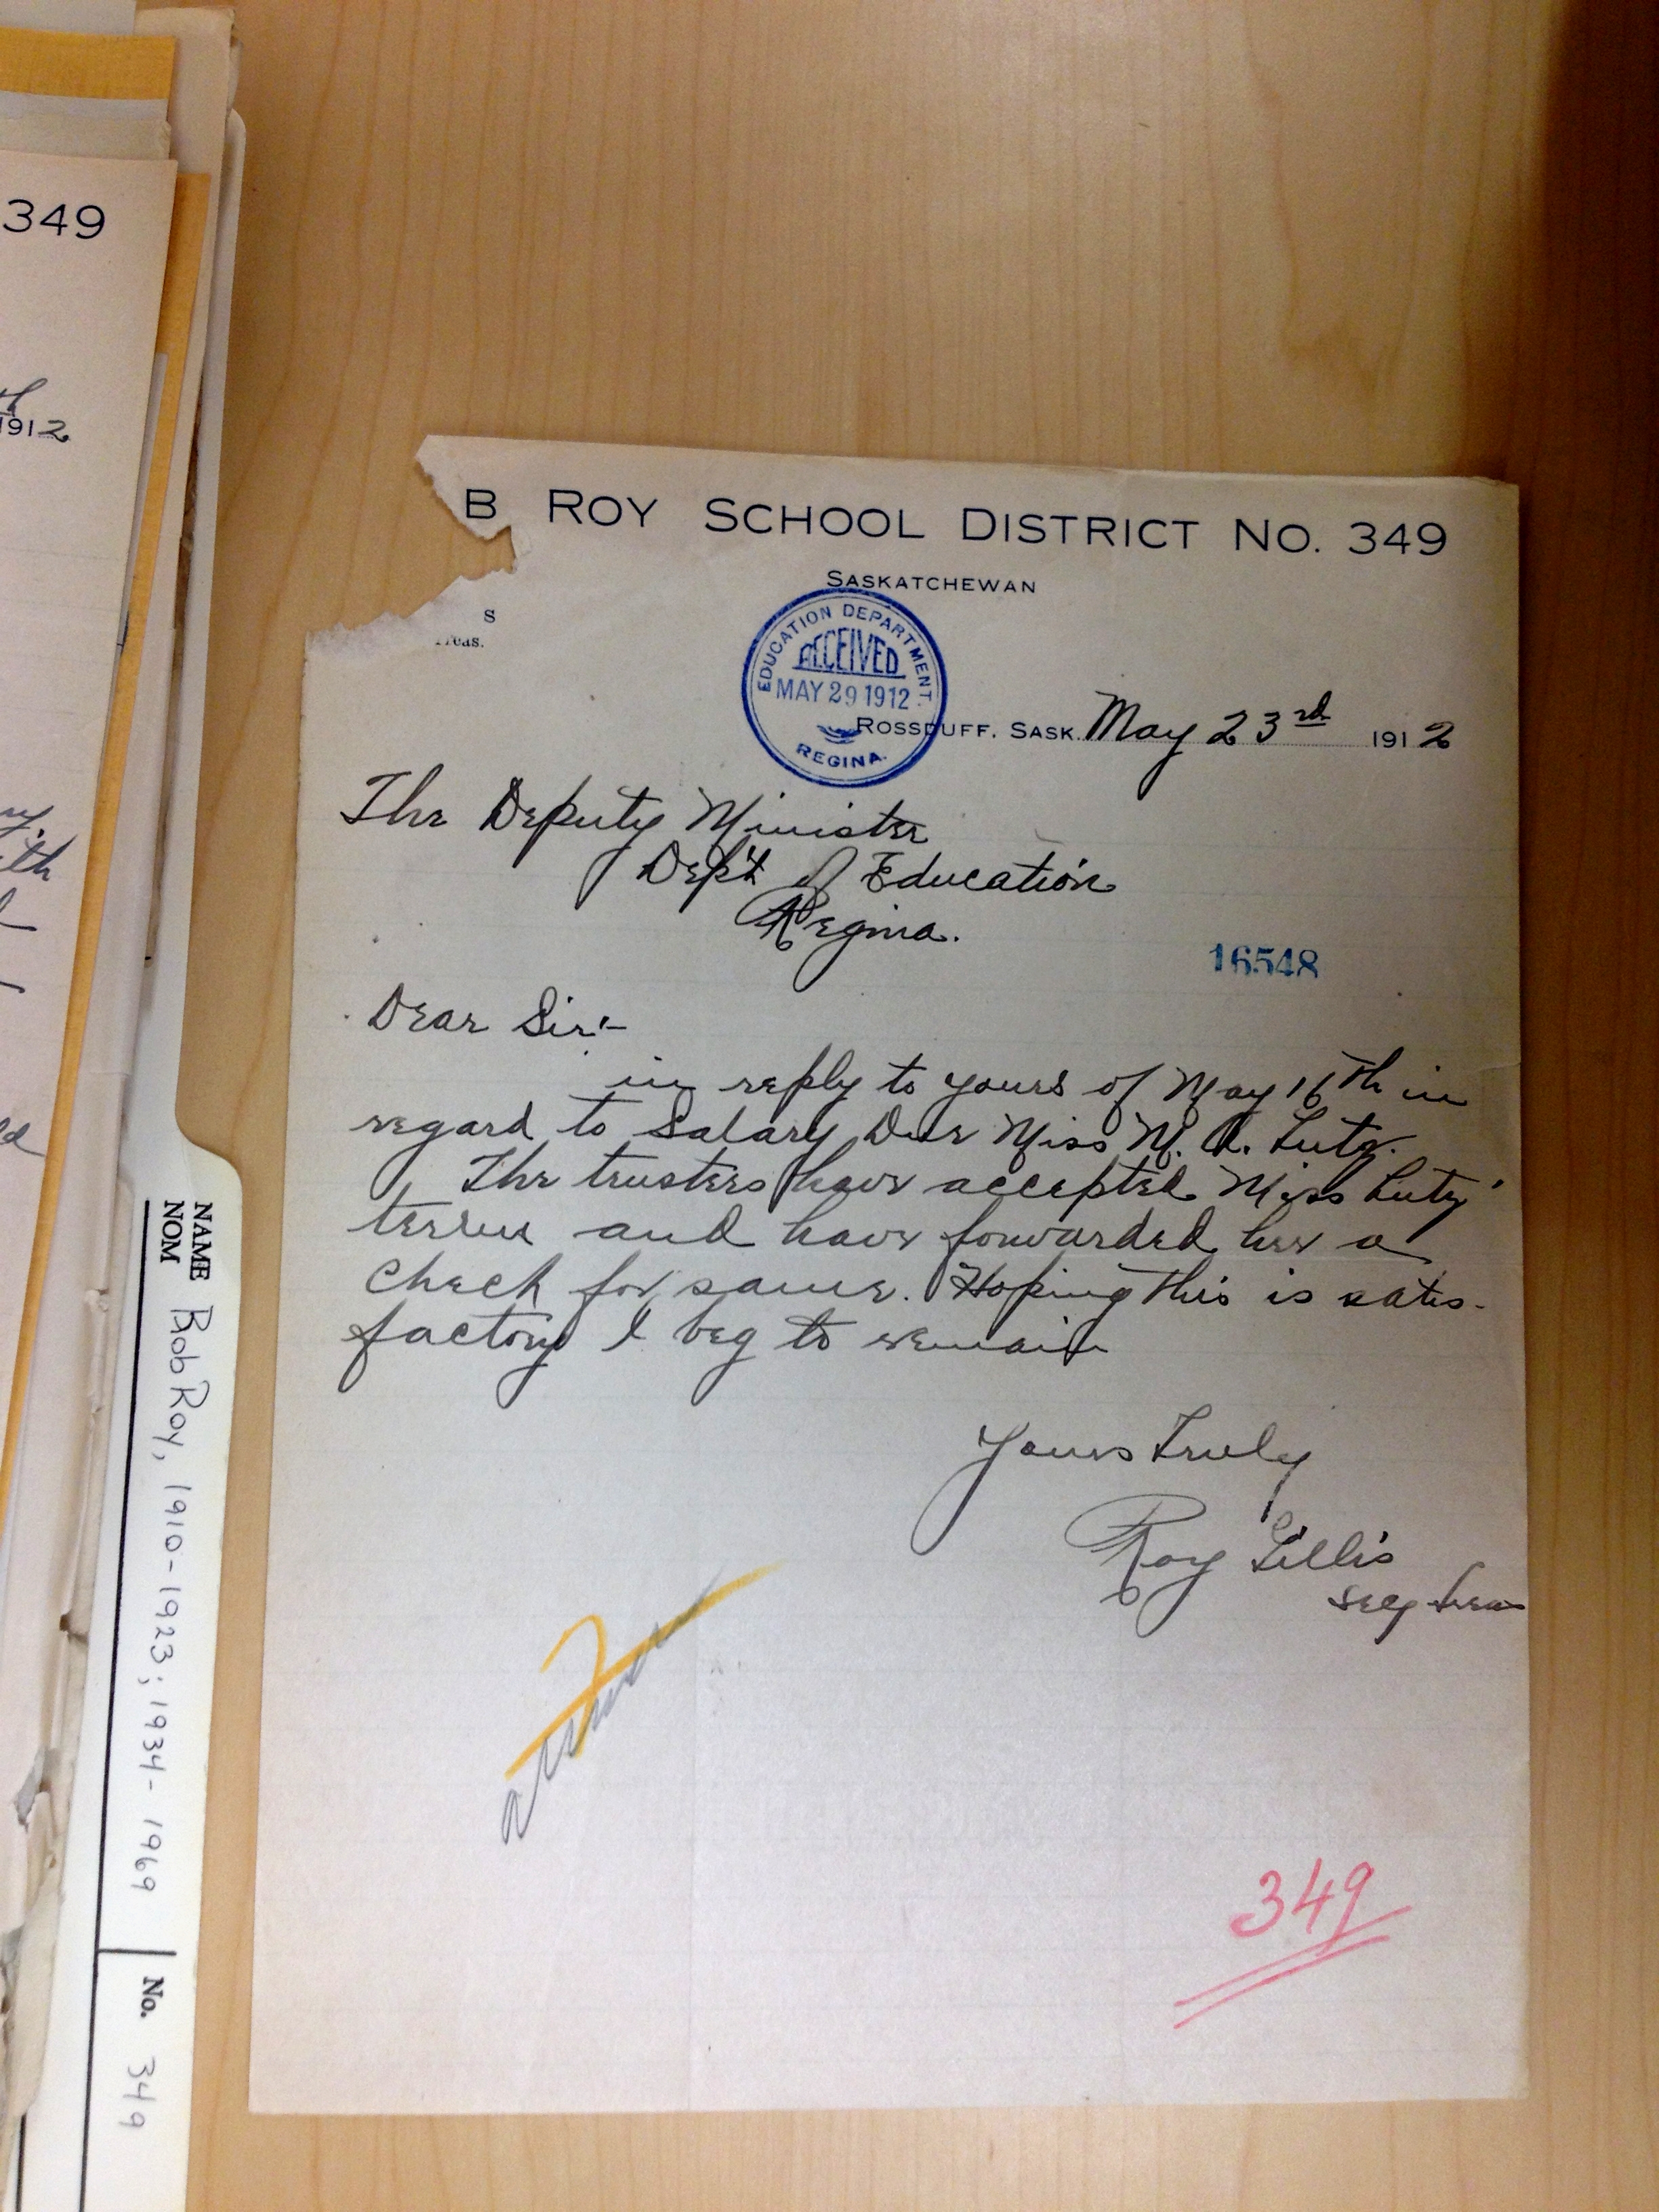 349
1912
B ROY SCHOOL DISTRICT NO. 349
SASKATCHEWAN
S
Treas.
EDUCATION DEPARTMENT
RECEIVED
MAY 29 1912
REGINA.
ROSSDUFF, SASK. May 23rd 1912
The Deputy Minister
Dep't of Education
Regina.
16548
Dear Sir:-
in reply to yours of May 16th in
regard to Salary Due Miss M. A. Lutz.
The trusters have accepted Miss Lutz'
terms and have forwarded her a
check for same. Hoping this is satis-
factory I beg to remain
Yours Truly
Roy Gillis
Secy treas
349
NAME
NOM
Bob Roy, 1910-1923; 1934-1969
No. 349